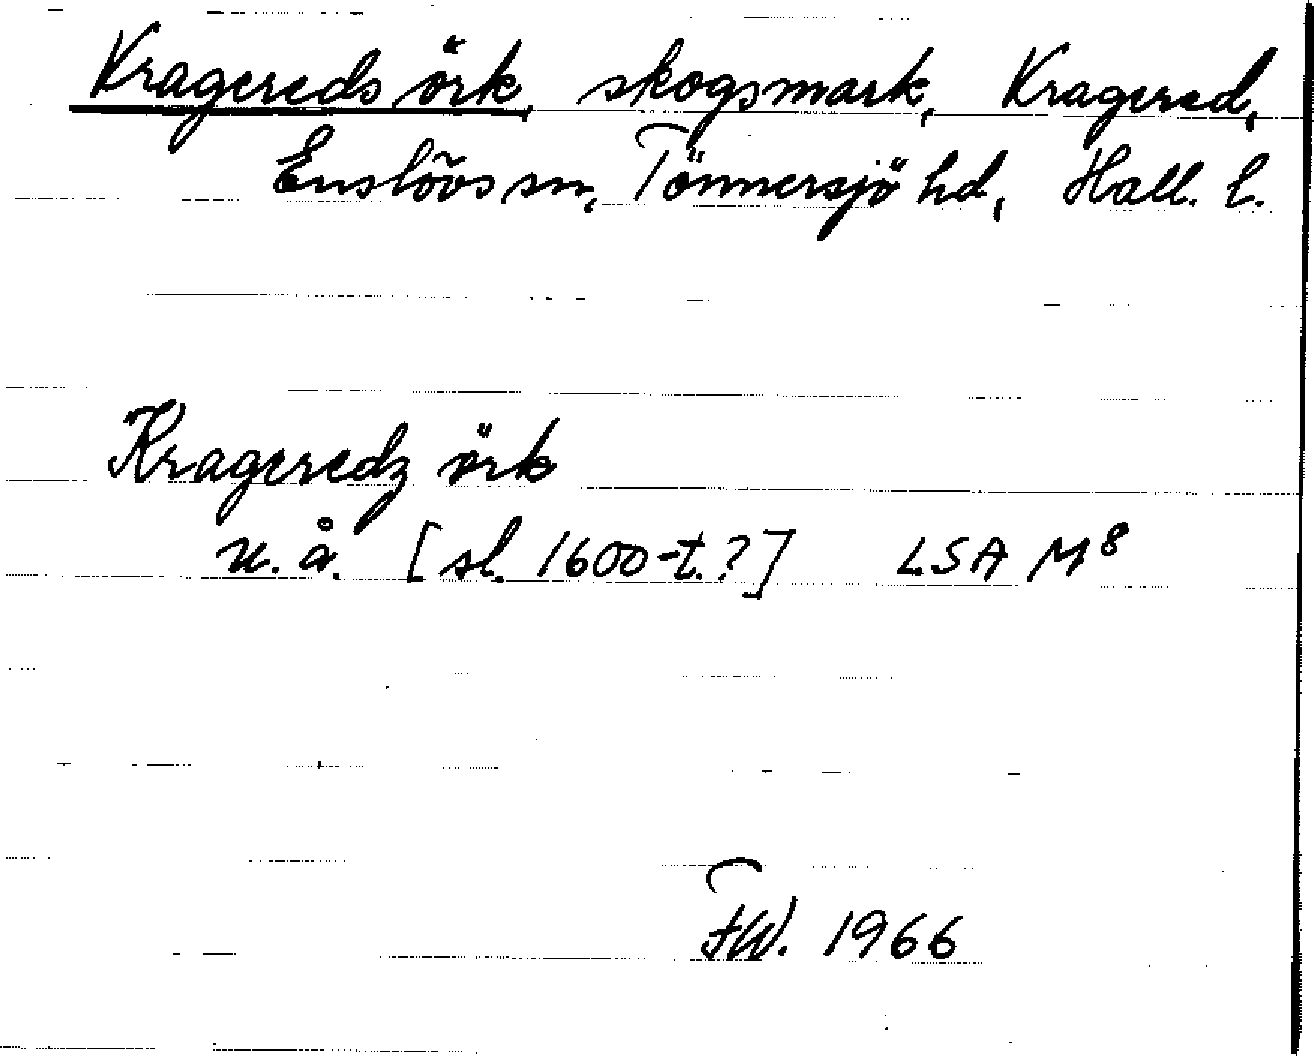 Kragereds örk, skogsmark, Kragered,
Enslövs sn, Tönnersjö hd, Hall. l.
Krageredz örk
u. å. [sl. 1600-t.?] LSA M8
FW. 1966